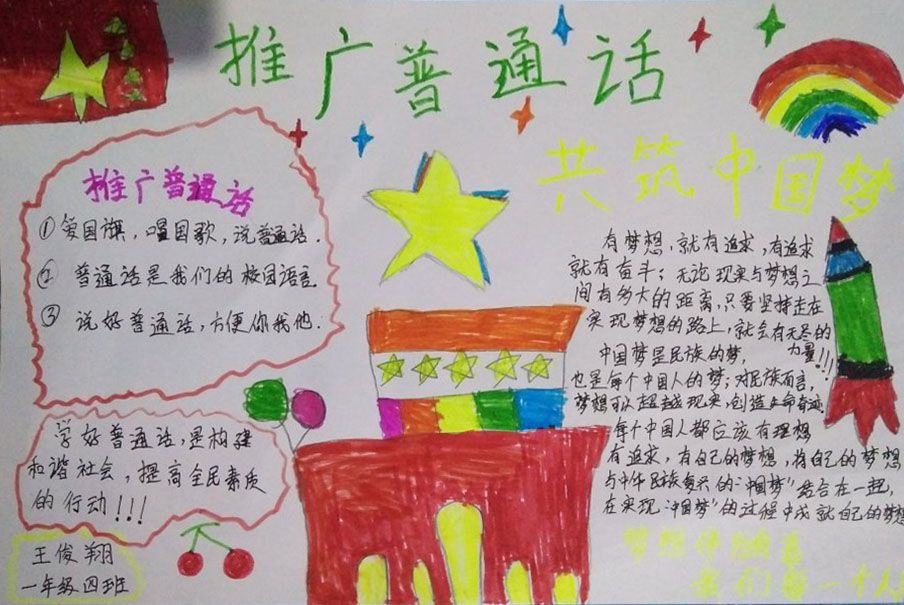 推广普通话
共筑中国梦
推广普通话
①爱国旗，唱国歌，说普通话．
② 普通话是我们的校园语言
③ 说好普通话，方便你我他．
学好普通话，是构建
和谐社会，提高全民素质
的行动!!!
王俊翔
一年级四班
有梦想，就有追求，有追求
就有奋斗；无论现实与梦想之
间有多大的距离，只要坚持走在
实现梦想的路上，就会有无尽的
力量!!!
中国梦是民族的梦，
也是每个中国人的梦；对民族而言，
梦想可以超越现实，创造生命奇迹
每个中国人都应该有理想
有追求，有自己的梦想，将自己的梦想
与中华民族复兴的“中国梦”结合在一起，
在实现“中国梦”的过程中成就自己的梦想
梦想伴随着
我们每一个人